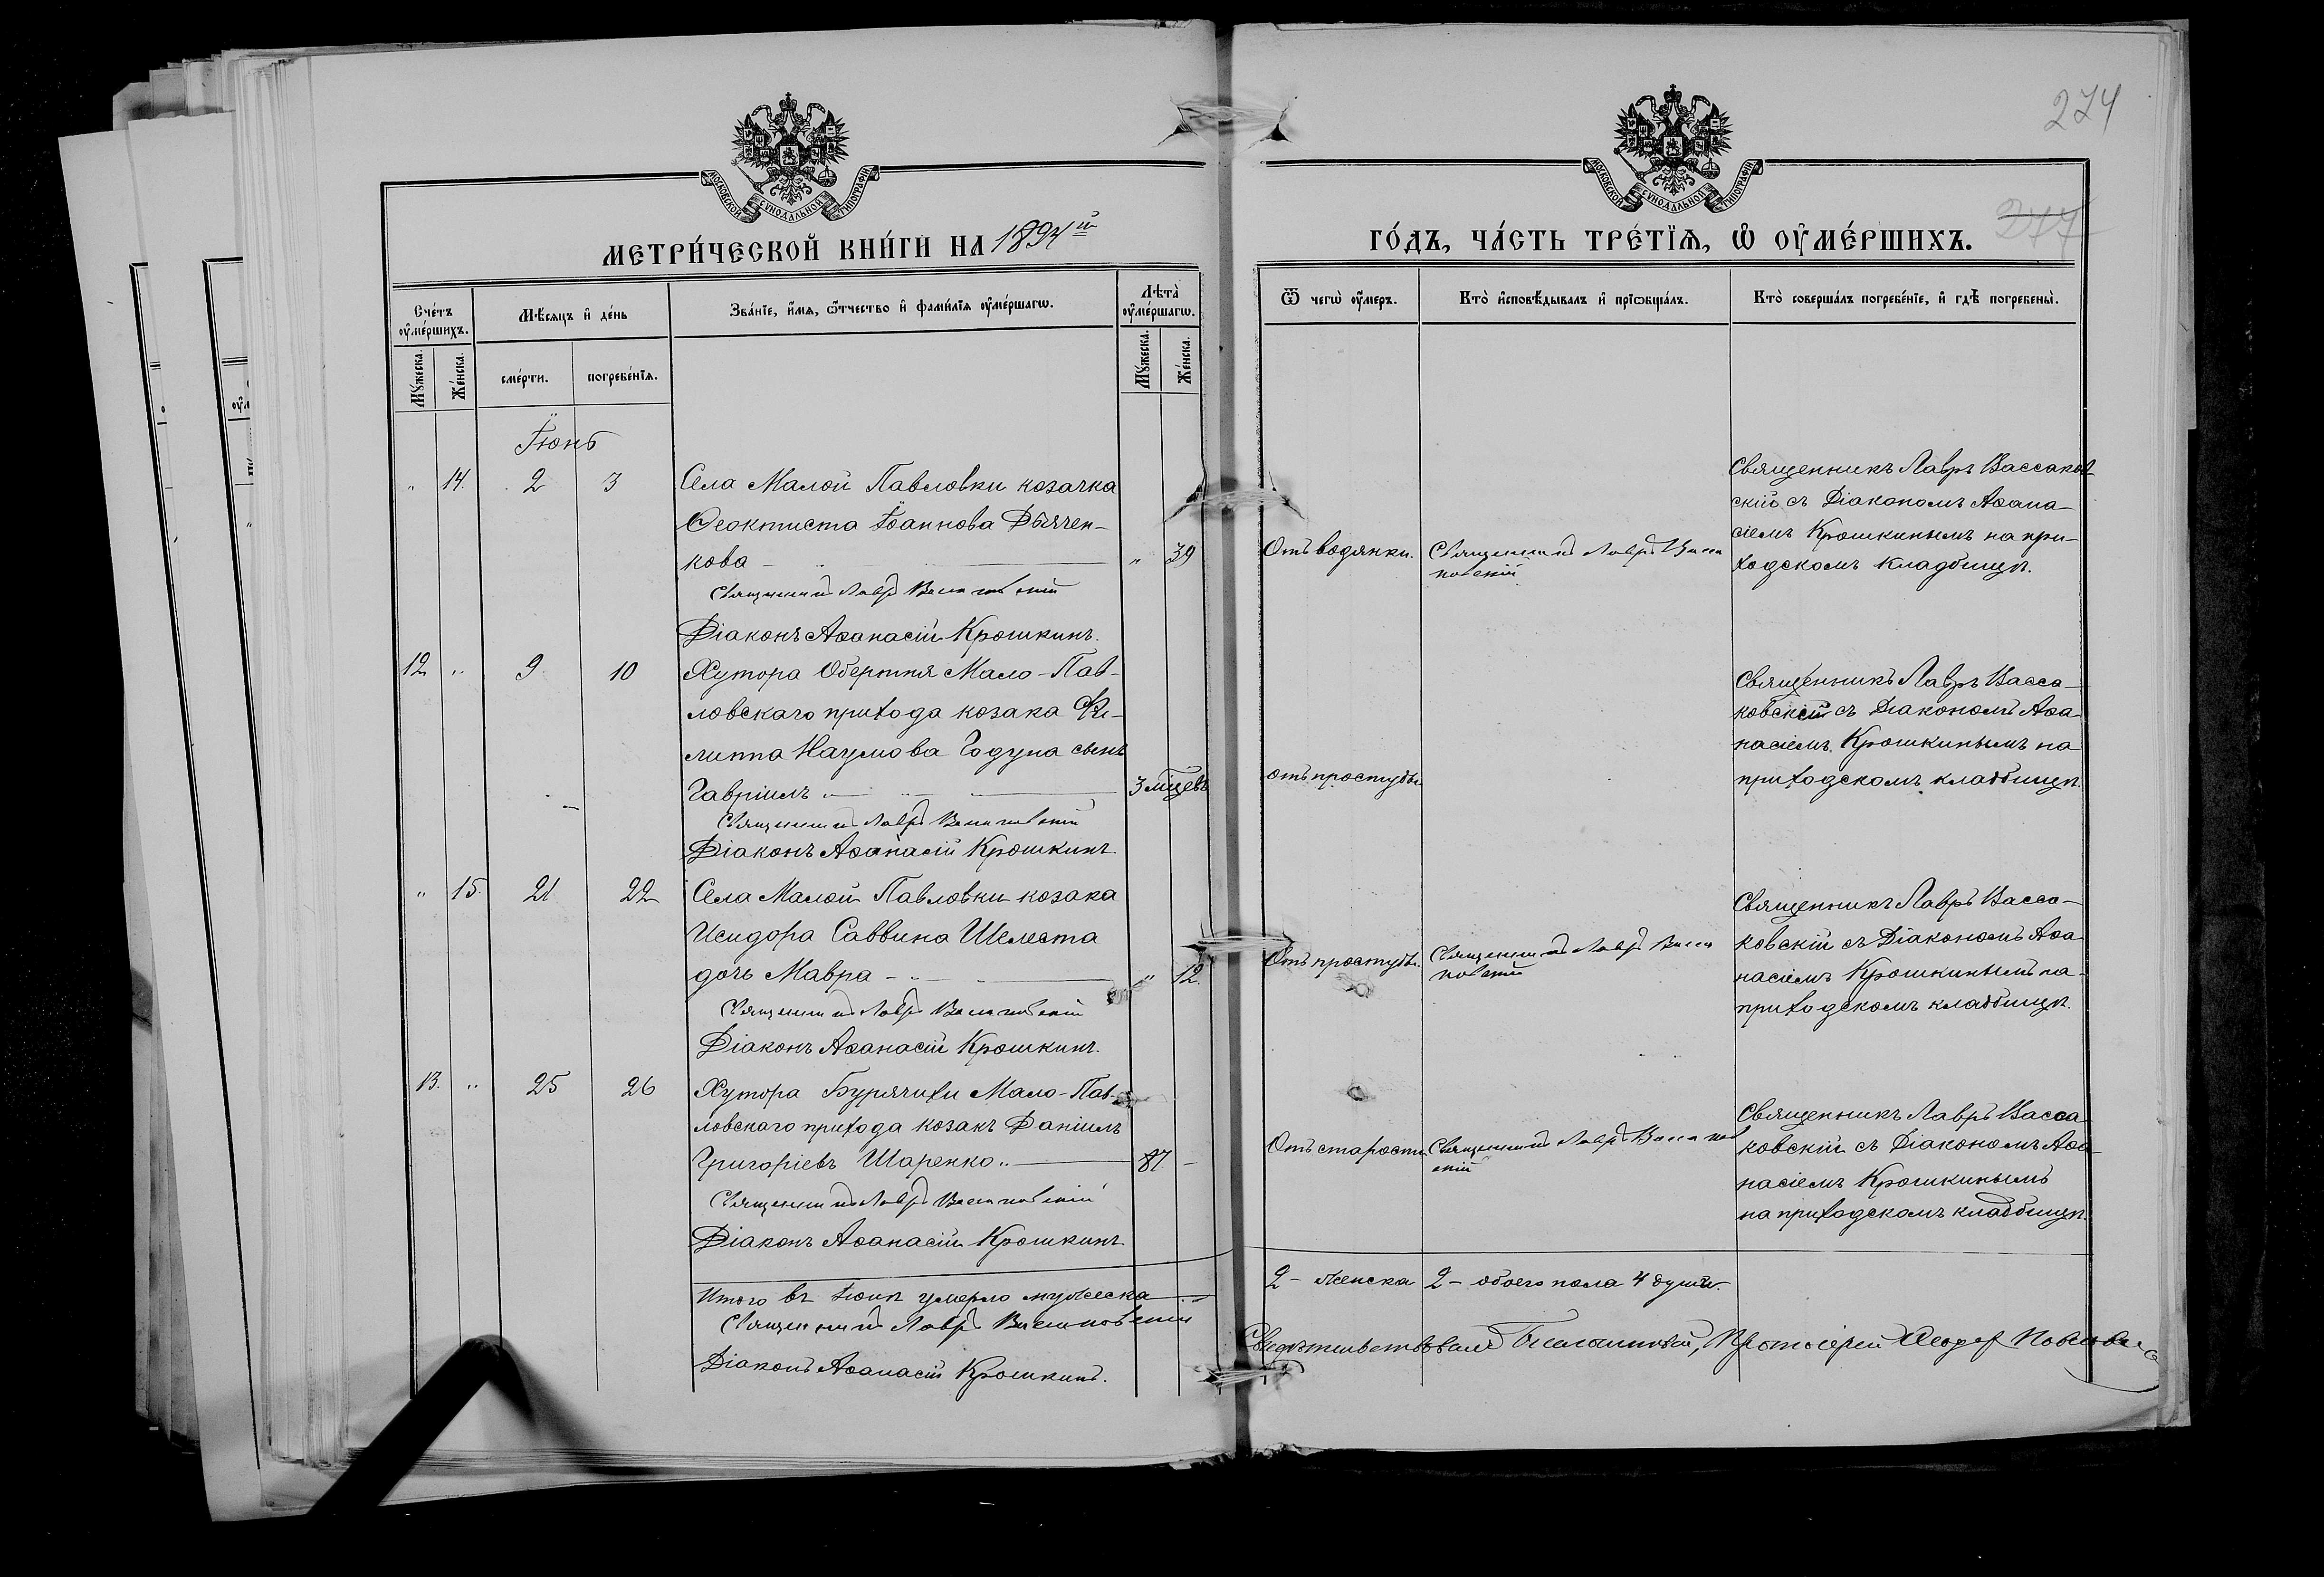 274
МОСКОВСКОЙ СѴНОДАЛЬНОЙ ТИПОГРАФІИ
МОСКОВСКОЙ СѴНОДАЛЬНОЙ ТИПОГРАФІИ
МЕТРИ́ЧЕСКОЙ КНИ́ГИ НА 1894й
ГО́ДЪ, ЧА́СТЬ ТРЕ́ТЇѦ, Ѡ҆ ОУ҆МЕ́РШИХЪ.
277
Сче́тъ оу҆ме́ршихъ.
Мѣ́сѧцъ и҆ де́нь
Зва́нїе, и҆́мѧ, ѻ҆́тчество и҆ фами́лїѧ оу҆ме́ршагѡ.
Лѣта̀ оу҆ме́ршагѡ.
Ѿ чегѡ̀ оу҆́меръ.
Кто̀ и҆сповѣ́дывалъ и҆ прїѡбща́лъ.
Кто̀ соверша́лъ погребе́нїе, и҆ гдѣ̀ погребены̀.
Мꙋ́жеска.
Же́нска.
сме́рти.
погребе́нїѧ.
Мꙋ́жеска.
Же́нска.
Іюнь
" 14. 2 3 Села Малой Павловки козачка
Ѳеоктиста Іоаннова Дьячен-
кова " 39
Священникъ Лавръ Вассаковскій
Діаконъ Аѳанасій Крошкинъ.
Отъ водянки.
Священникъ Лавръ Васса
ковскій
Священникъ Лавръ Вассаков
скій съ Діакономъ Аѳана-
сіемъ Крошкинымъ на при-
ходскомъ кладбищѣ.
12 " 9 10 Хутора Обертня Мало-Пав-
ловскаго прихода козака Фи-
липпа Наумова Годуна сынъ
Гавріилъ 3 мѣцевъ
Священникъ Лавръ Вассаковскій
Діаконъ Аѳанасій Крошкинъ
отъ простуды
Священникъ Лавръ Васса-
ковскій съ Діакономъ Аѳа-
насіемъ Крошкинымъ на
приходскомъ кладбищѣ.
" 15. 21 22 Села Малой Павловки козака
Исидора Саввина Шелеста
дочь Мавра " 12.
Священникъ Лавръ Вассаковскій
Діаконъ Аѳанасій Крошкинъ.
Отъ простуды.
Священникъ Лавръ Васса
ковскій
Священникъ Лавръ Васса-
ковскій съ Діакономъ Аѳа-
насіемъ Крошкинымъ на
приходскомъ кладбищѣ.
13. " 25 26 Хутора Бурячихи Мало-Пав-
ловскаго прихода козакъ Даніилъ
Григоріевъ Шаренко 87. -
Священникъ Лавръ Вассаковскій
Діаконъ Аѳанасій Крошкинъ
Отъ старости
Священникъ Лавръ Вассаков
скій
Священникъ Лавръ Васса
ковскій съ Діакономъ Аѳа-
насіемъ Крошкинымъ
на приходскомъ кладбищѣ.
Итого въ Іюнѣ умерло мужеска
2 - женска 2 - обоего пола 4 души.
Священникъ Лавръ Вассаковскій
Діаконъ Аѳанасій Крошкинъ.
Свидѣтельствовалъ Протоіерей Ѳеодоръ